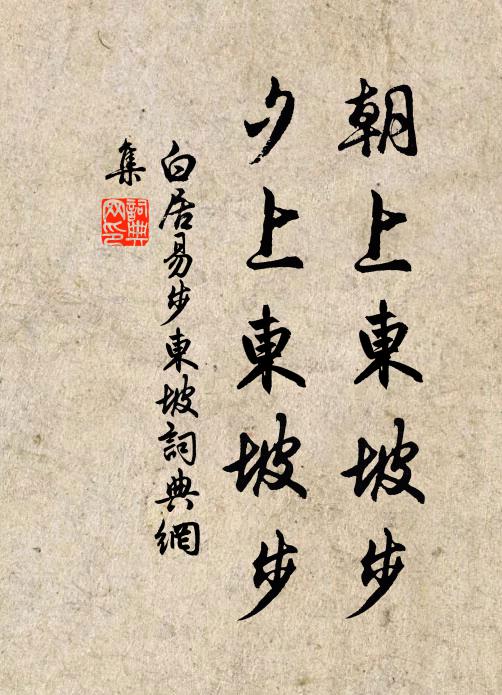 朝上東坡步
夕上東坡步
白居易步東坡詞典網
集
詞典
网印